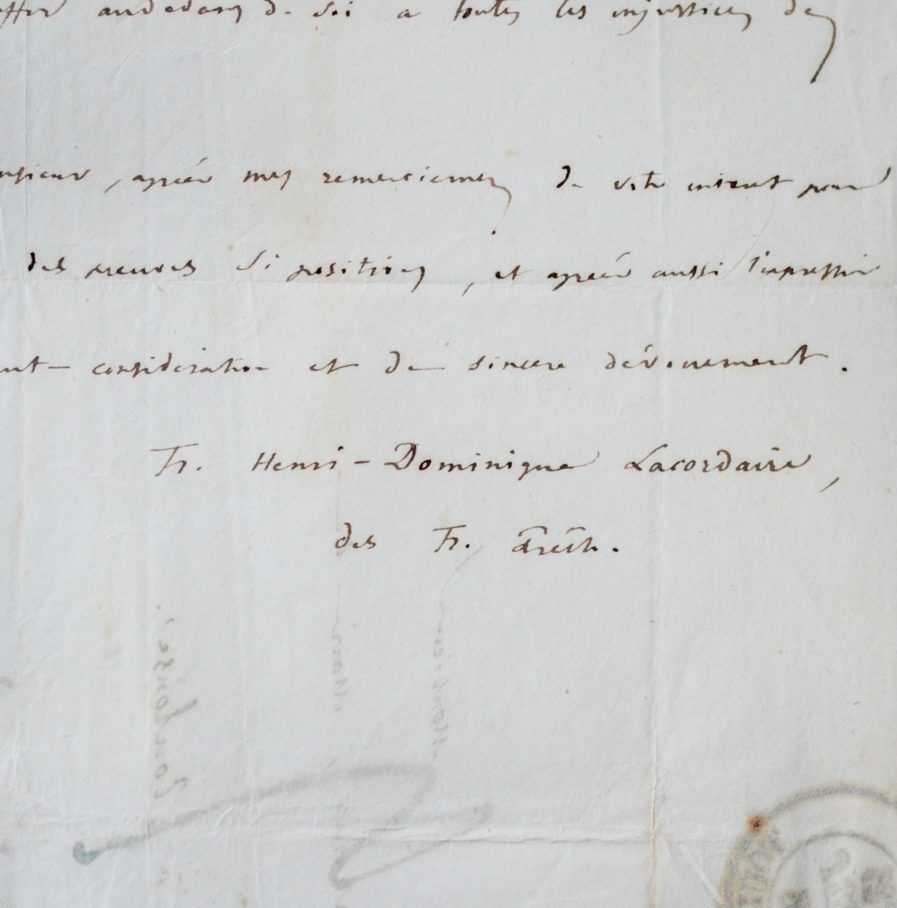 au dedans de soi à toutes les injustices des
, agréer mes remerciemens de votre intérêt pour
des preuves si positives, et agréer aussi l'expression
considération et de sincère dévouement.
Fr. Henri-Dominique Lacordaire,
des Fr. Prêch.